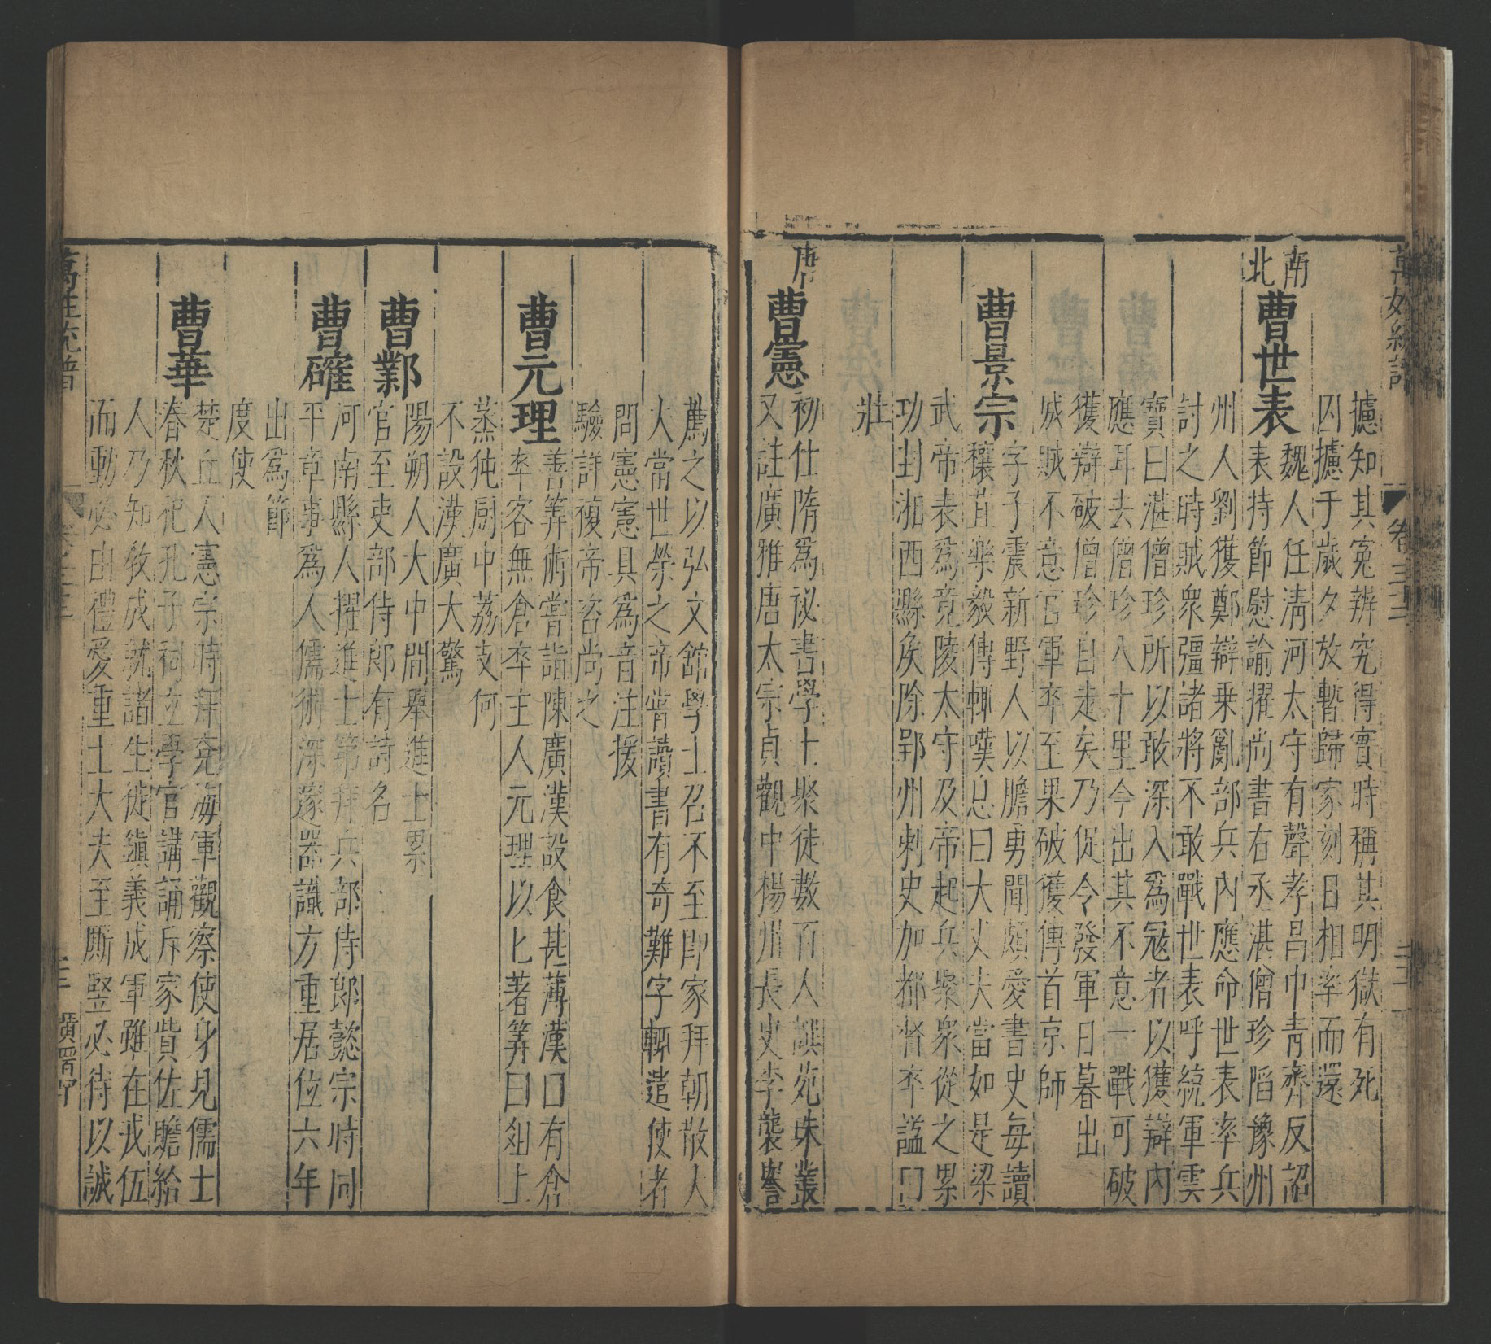 攄知其寃辨究得實時稱其明獄有死
囚攄于歲夕放暫歸家刻日相率而還
南北
曹世表
魏人任淸河太守有聲孝昌中靑齊反詔
表持節慰諭擢尚書右丞湛僧珍陷豫州
州人劉獲鄭辯乗亂部兵內應命世表率兵
討之時賊衆彊諸將不敢戰世表呼統軍雲
寳曰湛僧珍所以敢深入爲冦者以獲辯內
應耳去僧珍八十里今出其不意一戰可破
獲辯破僧珍自走矣乃促令發軍日暮出
城賊不意官軍卒至果破獲傳首京師
曹景宗
字子震新野人以膽勇聞頗愛書史每讀
穰苴樂毅傳輒嘆息曰大丈夫當如是梁
武帝表爲竟陵太守及帝起兵聚衆從之累
功封湘西縣矦除郢州刺史加都督卒謚曰
壯
唐
曹憲
初仕隋爲祕書學士聚徒數百人譔苑珠叢
又註廣雅唐太宗貞觀中楊州長史李襲譽
薦之以弘文舘學士召不至卽家拜朝散大
夫當世榮之帝嘗讀書有奇難字輒遣使者
問憲憲具爲音注援
驗詳複帝咨尚之
曹元理
善筭術嘗詣陳廣漢設食甚薄漢曰有倉
卒客無倉卒主人元理以匕著筭曰俎上
蒸㹠厨中荔支何
不設漢廣大驚
曹鄴
陽朔人大中間舉進士累
官至吏部侍郎有詩名
曹確
河南縣人擢進士第拜兵部侍郎懿宗時同
平章事爲人儒術深邃器識方重居位六年
出爲節
度使
曹華
楚丘人憲宗時爲兖海軍觀察使身見儒士
春秋祀孔子祠立學官講誦斥家貲佐贍給
人乃知敎成就諸生徙鎭義成軍雖在戎伍
而動必由禮愛重士大夫至厮竪必待以誠
萬姓統譜
卷三十三